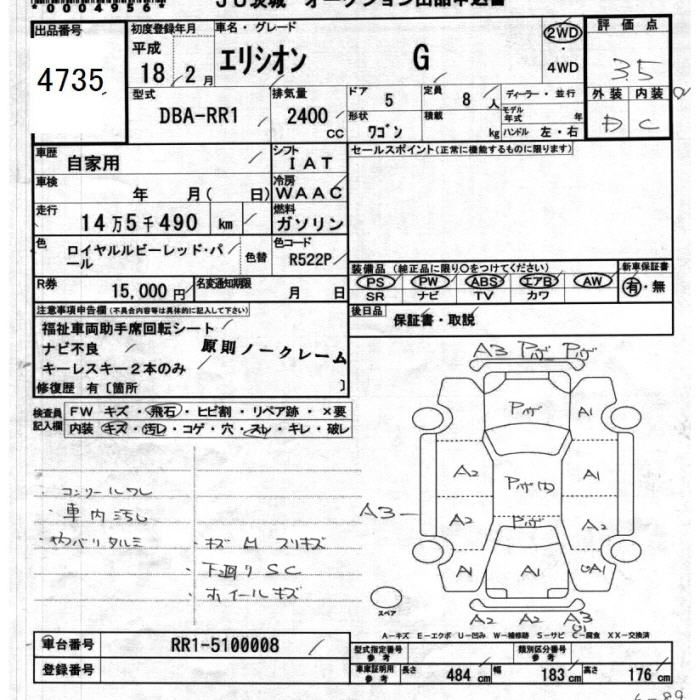 *0004998*
JU茨城 オークション出品申込書
出品番号
4735
初度登録年月
平成
18 / 2月
車名・グレード
エリシオン G
2WD
・
4WD
評価点
3.5
外装 内装
D C
型式
DBA-RR1
排気量
2400
CC
ドア
5
定員
8 人
形状
ワゴン
積載
kg
ディーラー・並行
モデル年式 年
ハンドル 左・右
車歴
自家用
シフト
IAT
セールスポイント(正常に機能するものに限ります)
車検
年 月( 日)
冷房
WAAC
走行
14万5千490 km
燃料
ガソリン
色
ロイヤルルビーレッド・パール
色替
色コード
R522P
R券
15,000 円
名変通知期限
月 日
装備品(純正品に限り○をつけてください)
PS PW ABS エアB AW
SR ナビ TV カワ
新車保証書
有・無
後日品
保証書・取説
注意事項申告欄(不具合内容は具体的に記入して下さい)
福祉車両助手席回転シート
ナビ不良
原則ノークレーム
キーレスキー2本のみ
修復歴 有〔箇所 〕
検査員記入欄
FW キズ・飛石・ヒビ割・リペア跡・×要
内装 キズ・汚レ・コゲ・穴・スレ・キレ・破レ
・コンソールワレ
・車内汚レ
・内バリタルミ
・キズ凹スリキズ
・下廻りSC
・ホイールキズ
A3 Pカゲ Pカゲ
Pカゲ
A1
A2
A1
A3
A2
A2
A1
A1
A2 A2 A3
スペア
A-キズ E-エクボ U-凹み W-補修跡 S-サビ C-腐食 XX-交換済
車台番号
RR1-5100008
登録番号
型式指定番号
参考
類別区分番号
参考
車庫証明用
参考
長さ 484 cm 幅 183 cm 高さ 176 cm